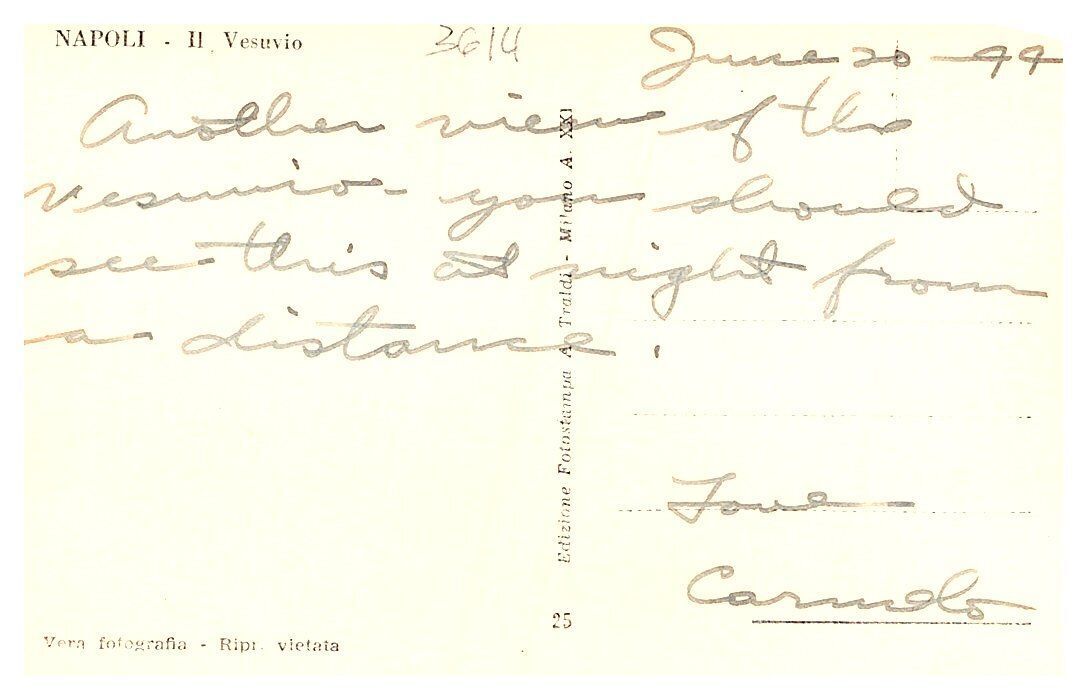 NAPOLI - Il Vesuvio
3614
June 20 - 44
Another view of the
Vesuvio - you should
see this at night from
a distance.
Love
Carmelo
Edizione Fotostampa A. Traldi - Milano A. XXI
25
Vera fotografia - Ripr. vietata